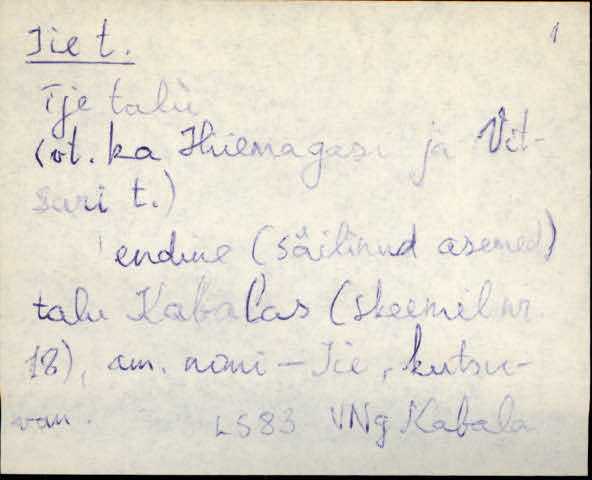 Iie t. 1
Ije talu
(vt. ka Hiiemagasi ja Vit-
sari t.)
endine (säilinud asemed)
talu Kabalas (skeemil nr.
18), am. nimi - Iie, kutsu-
van.
LS83 VNg Kabala